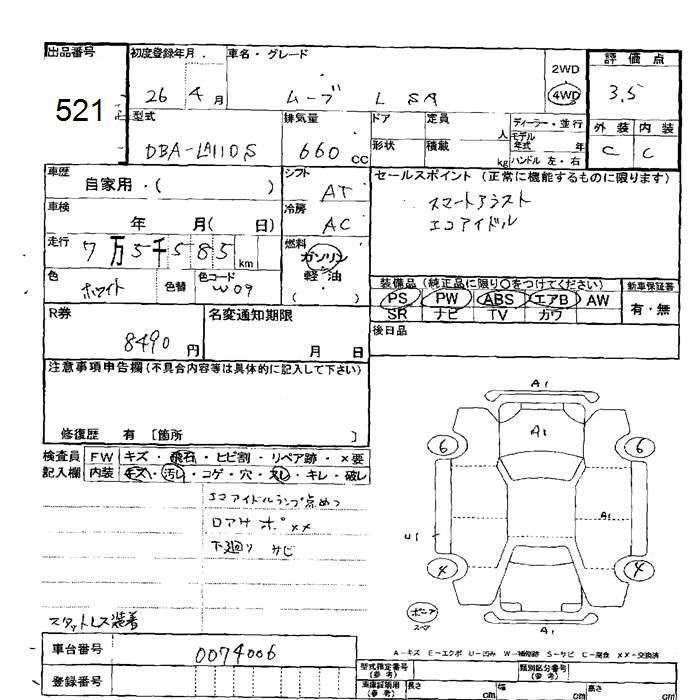 出品番号
521
初度登録年月
26 4月
車名・グレード
ムーブ L SA
2WD
4WD
評価点
3.5
型式
DBA-LA110S
排気量
660 CC
ドア
形状
定員 人
積載 kg
ディーラー・並行
モデル年式 年
ハンドル 左・右
外装 内装
C C
車歴
自家用・( )
シフト
AT
セールスポイント(正常に機能するものに限ります)
スマートアシスト
エコアイドル
車検
年 月( 日)
冷房
AC
走行
7万5千585km
燃料
ガソリン
軽・油
( )
色
ホワイト
色替
色コード
W09
装備品(純正品に限り○をつけてください)
PS PW ABS エアB AW
SR ナビ TV カワ
新車保証書
有・無
R券
8490円
名変通知期限
月 日
後日品
注意事項申告欄(不具合内容等は具体的に記入して下さい)
修復歴 有 [箇所 ]
検査員
記入欄
FW キズ・飛石・ヒビ割・リペア跡・×要
内装 キズ・汚レ・コゲ・穴・スレ・キレ・破レ
エコアイドルランプ点めつ
ロアサポ××
下廻り サビ
スタットレス装着
A1
A1
6
6
A1
U1
4
4
A1
スペア
A-キズ E-エクボ U-凹み W-補修跡 S-サビ C-腐食 XX-交換済
車台番号
0074006
登録番号
型式指定番号
(参考)
類別区分番号
(参考)
車庫証明用
(参考)
長さ cm
幅 cm
高さ cm